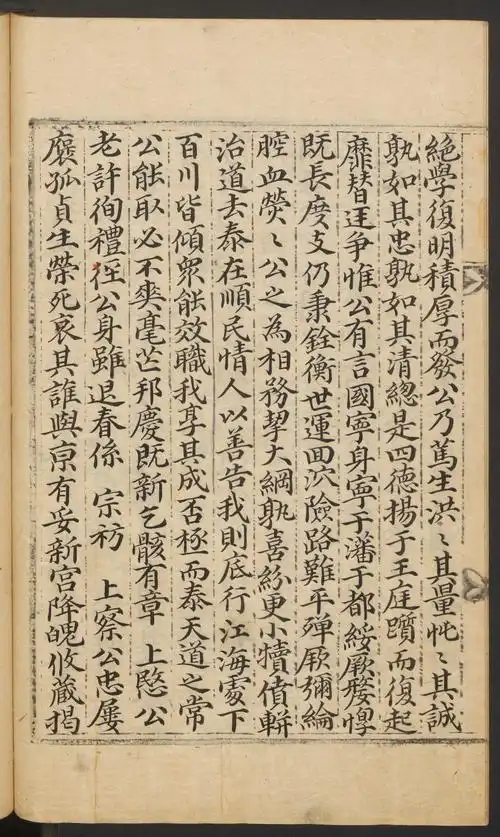 絶學復明積厚而發公乃篤生洪〻其量忱〻其誠
孰如其忠孰如其淸緫是四德揚于王庭躓而復起
靡替迋爭惟公有言國寧身寧于藩于都綏厥發惸
既長度支仍秉銓衡世運回泬險路難平殫厥彌綸
腔血熒〻公之為相務挈大綱孰喜紛更小犢僨輧
治道去泰在順民情人以善告我則底行江海處下
百川皆傾衆能效職我享其成否極而泰天道之常
公能取必不爽毫芒邦慶既新乞骸有章 上愍公
老許徇禮經公身雖退眷係 宗祊 上察公忠屢
褒孤貞生榮死哀其誰與京有妥新宮降魄攸藏揭